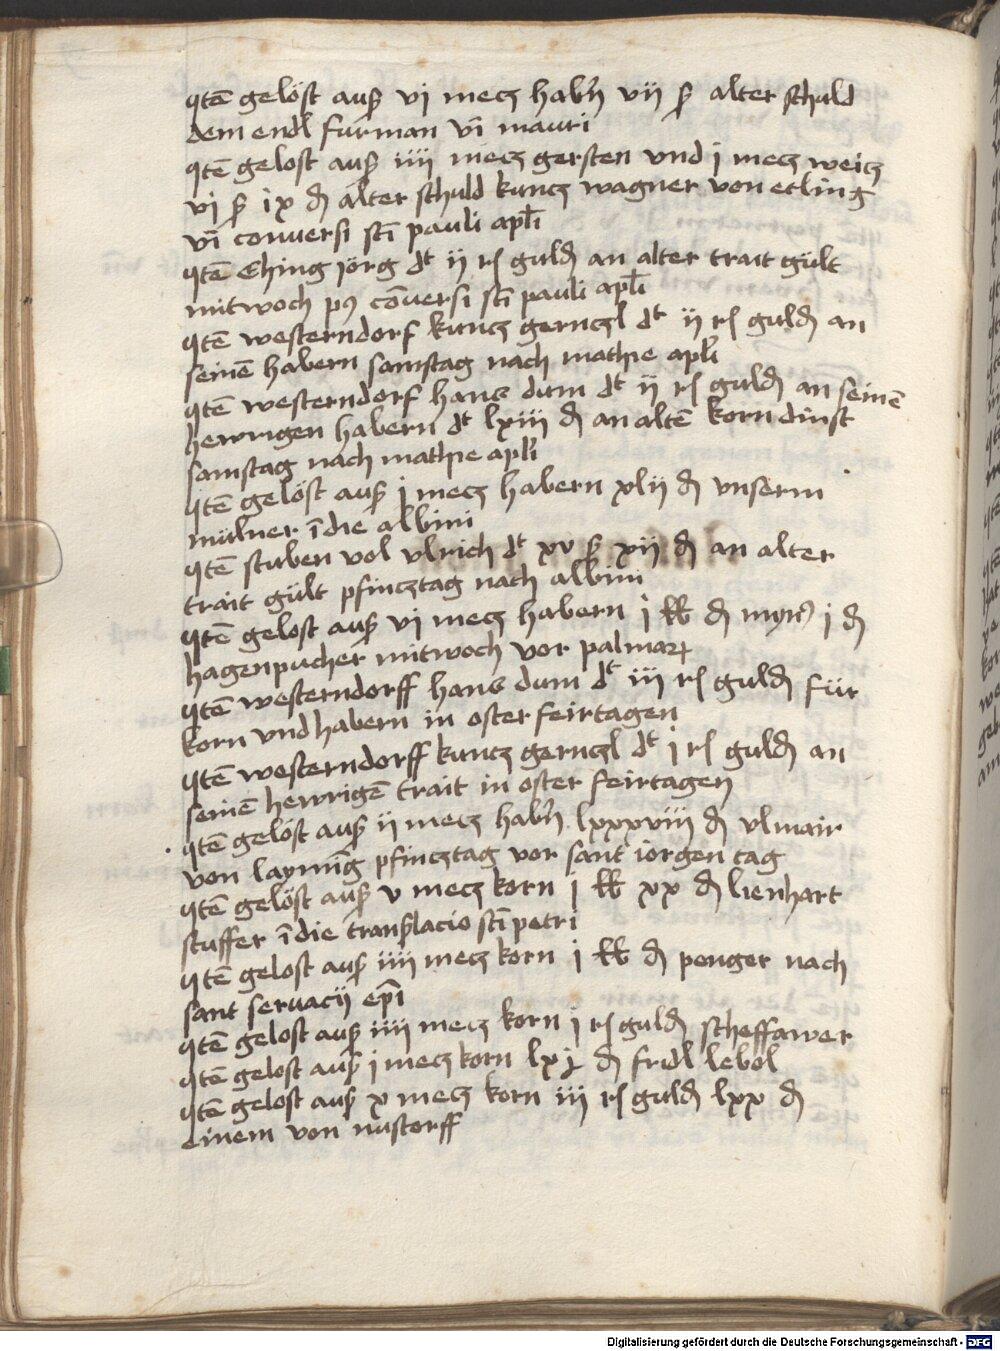 Itē gelöst auß vj mecz habn̄ vij ß alter schuld
dem endl furman vī mauri
Itē gelost auß iiij mecz gersten vnd j mecz weicz
vj ß ix ₰ alter schuld kuncz wagner von etling
vī conversi scī pauli apl̄i
Itē Ehing jörg dt ij rh̄ guld̄ an alter trait gült
mitwoch p9 cōversi scī pauli apl̄i
Itē westerndorf kuncz gernczl dt ij rh̄ guld̄ an
seinē habern samstag nach mathie apl̄i
Itē westerndorf hans dum dt ij rh̄ guld̄ an seinē
hewrigen habern dt lxiij ₰ an altē korn dinst
samstag nach mathie apl̄i
Itē gelöst auß j mecz habern xlij ₰ vnserm
mülner ī die albini
Itē stuben vol vlrich dt xv ß xij ₰ an alter
trait gült pfincztag nach albini
Itē gelost auß vj mecz habern j lb ₰ myn9 j ₰
hagenpucher mitwoch vor palmaꝝ
Itē westerndorff hans dum dt iij rh̄ guld̄ für
korn vnd habern in oster feirtagen
Itē westerndorff kuncz gernczl dt j rh̄ guld̄ an
seinē hewrigē trait in oster feirtagen
Itē gelöst auß ij mecz habn̄ lxxxviij ₰ vlmair
von laymīg pfincztag vor sant iorgen tag
Itē gelöst auß v mecz korn j lb xx ₰ lienhart
stuffer ī die tranßlacio scī petri
Itē gelost auß iiij mecz korn j lb ₰ penger nach
sant servacij ep̄i
Itē gelost auß iiij mecz korn j rh̄ guld̄ scheffawer
Itē gelost auß j mecz korn lxj ₰ fridl lebol
Itē gelost auß x mecz korn iij rh̄ guld̄ lxx ₰
einem von nustorff
Digitalisierung gefördert durch die Deutsche Forschungsgemeinschaft - DFG